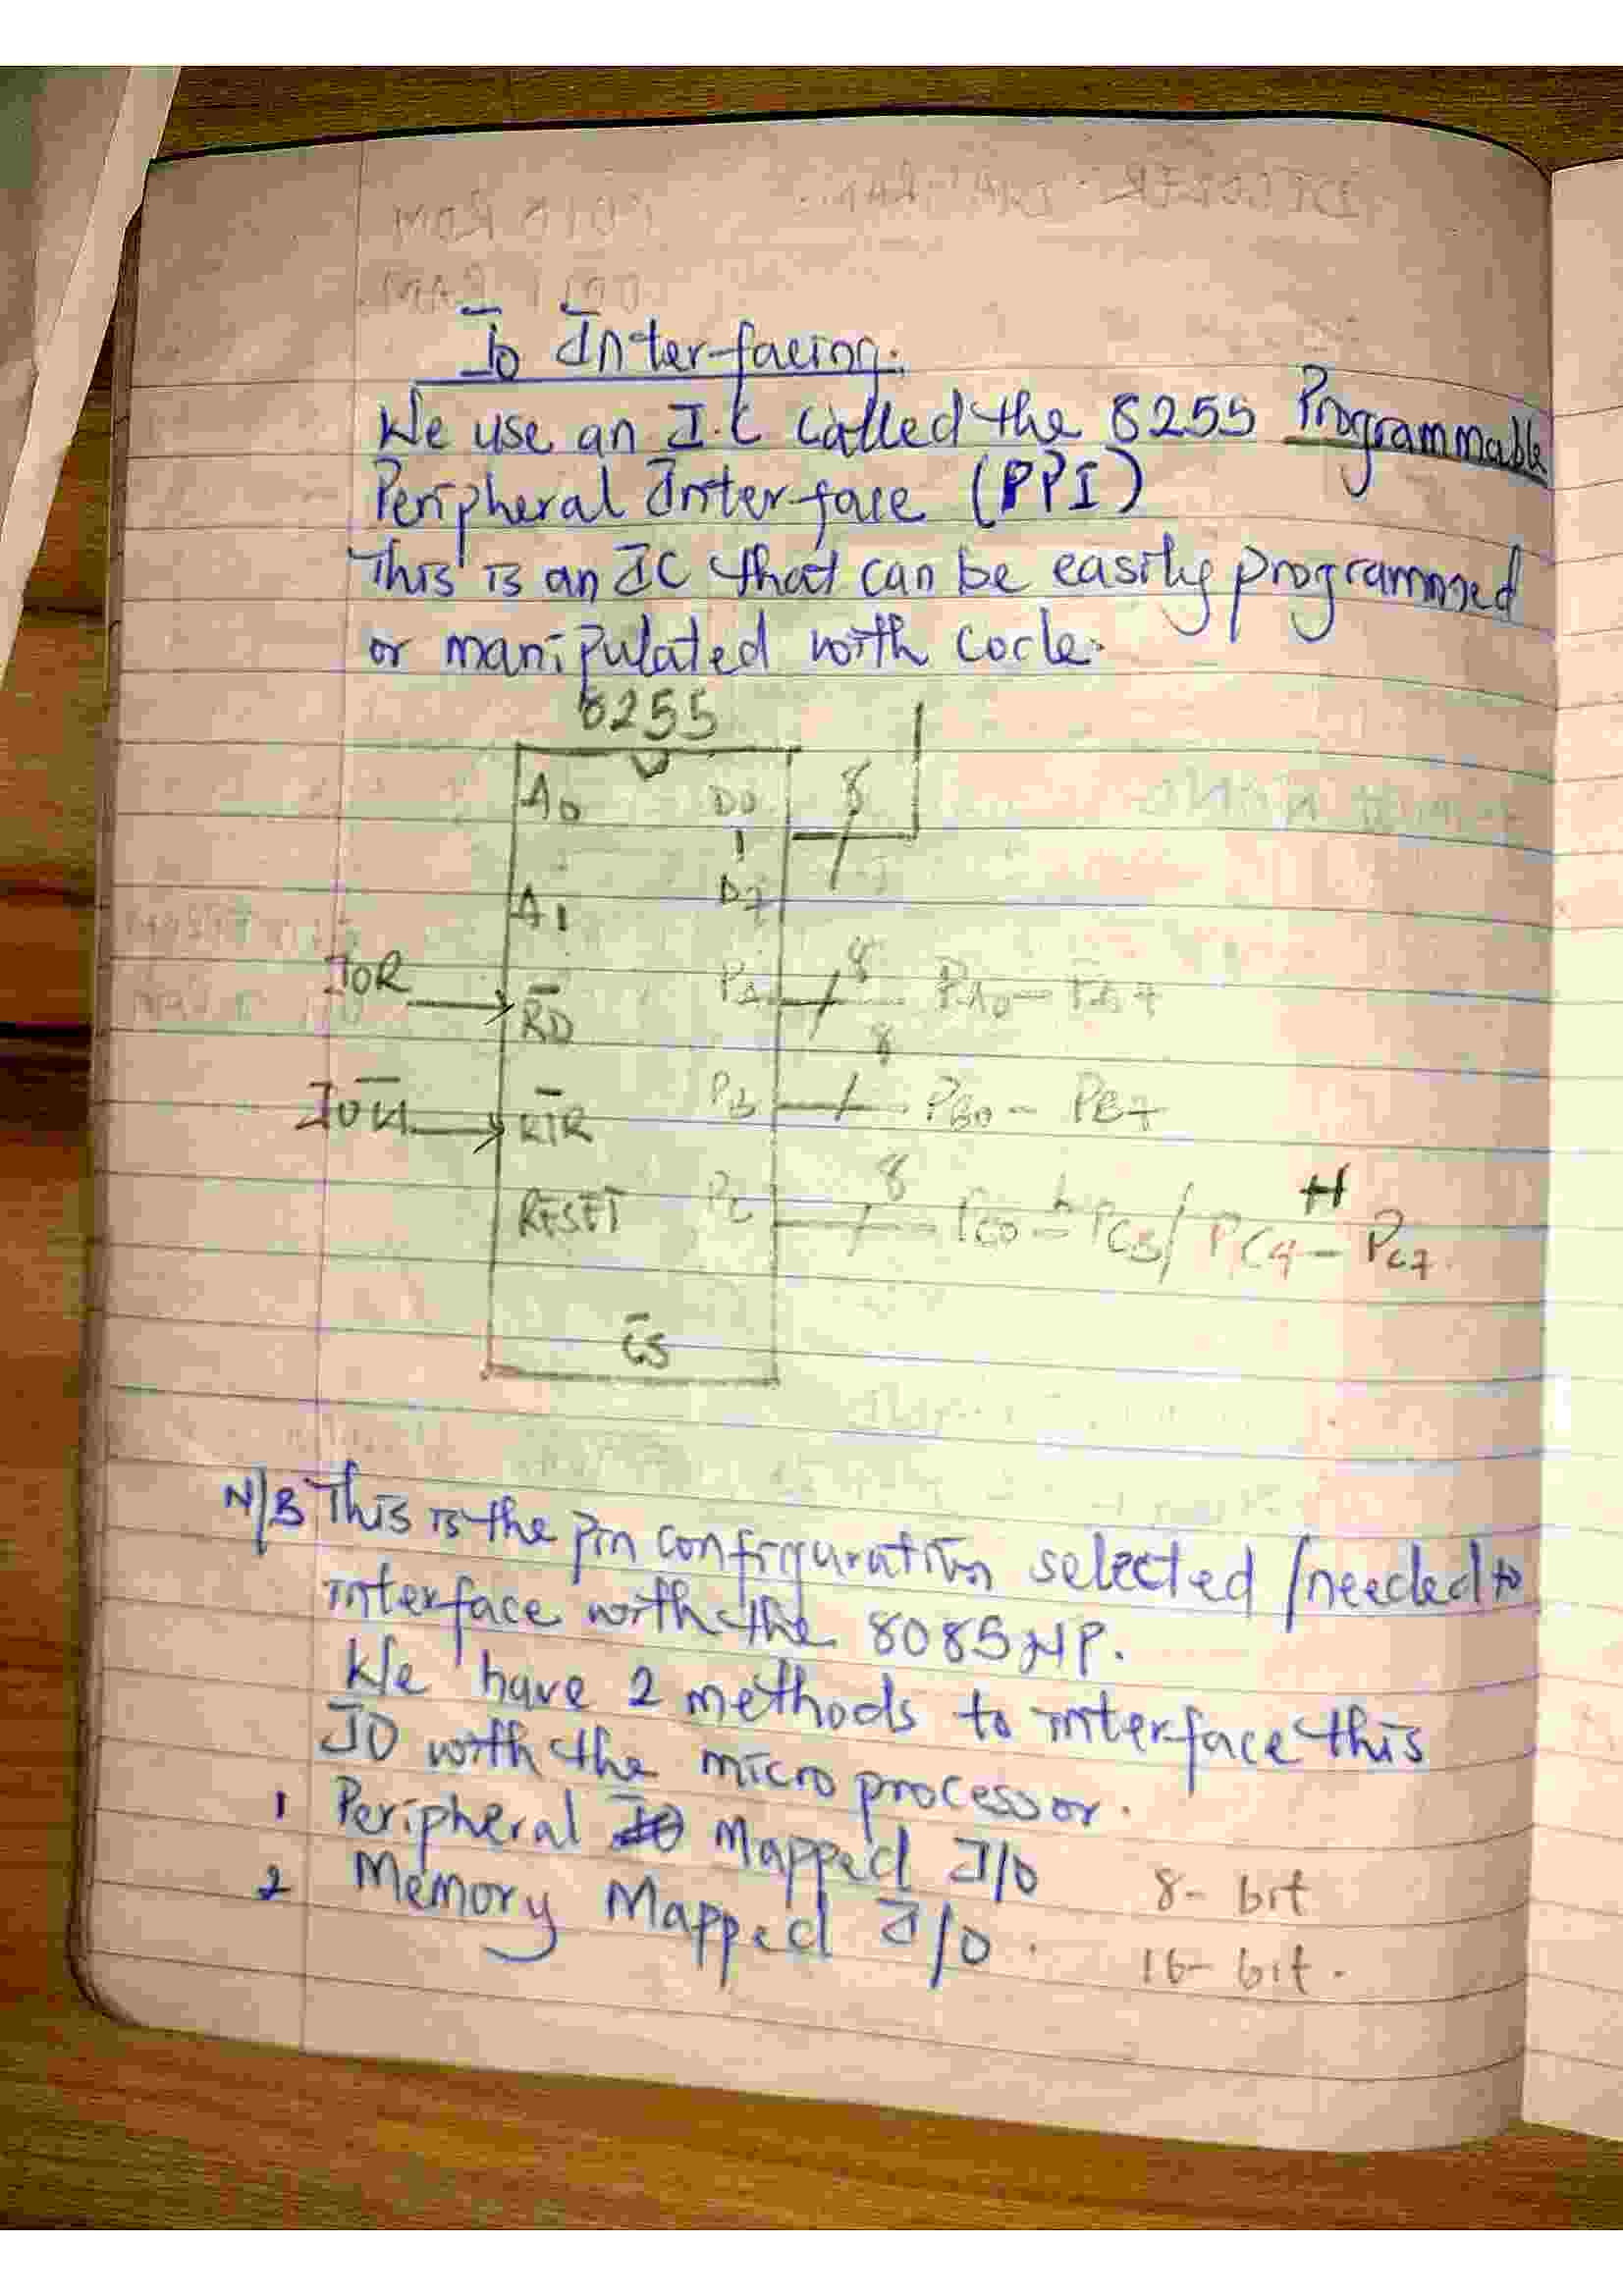 IO Interfacing.
We use an I.C called the 8255 Programmable
Peripheral Interface (PPI)
This is an IC that can be easily programmed
or manipulated with code.
8255
A0 D0 8
A1 D7
IOR RD PA 8 PA0 - PA7
IOW WR PB 8 PB0 - PB7
RESET PC 8 PC0 - PC3 / PC4 - PC7
L H
CS
N/B This is the pin configuration selected / needed to
interface with the 8085 μP.
We have 2 methods to interface this
IO with the microprocessor.
1 Peripheral Mapped I/O 8-bit
2 Memory Mapped I/O. 16-bit.